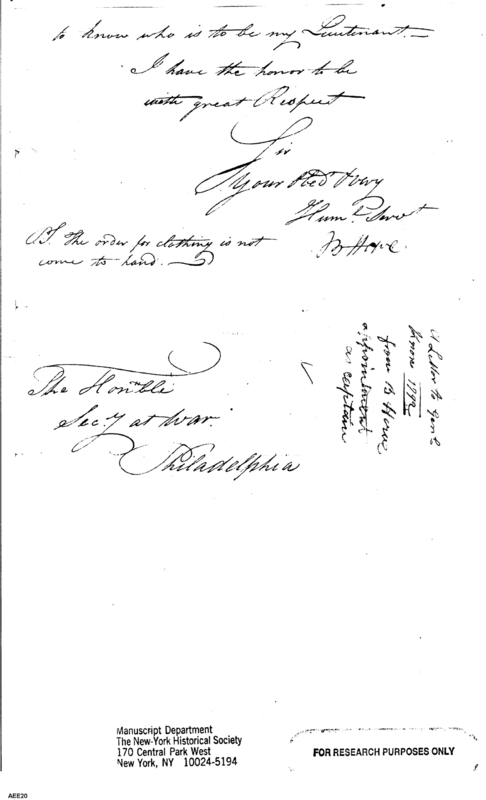 to know who is to be my Lieutenant.
I have the honor to be
with great Respect
Sir
Your Obed.t & very
Hum.l Servt
B Howe.
P.S. The order for clothing is not
come to hand.
A Letter to Genl
Knox 1792
from B Howe
appointment
as captain
The Hon.ble
Sec.y at War.
Philadelphia
Manuscript Department
The New-York Historical Society
170 Central Park West
New York, NY 10024-5194
FOR RESEARCH PURPOSES ONLY
AEE20